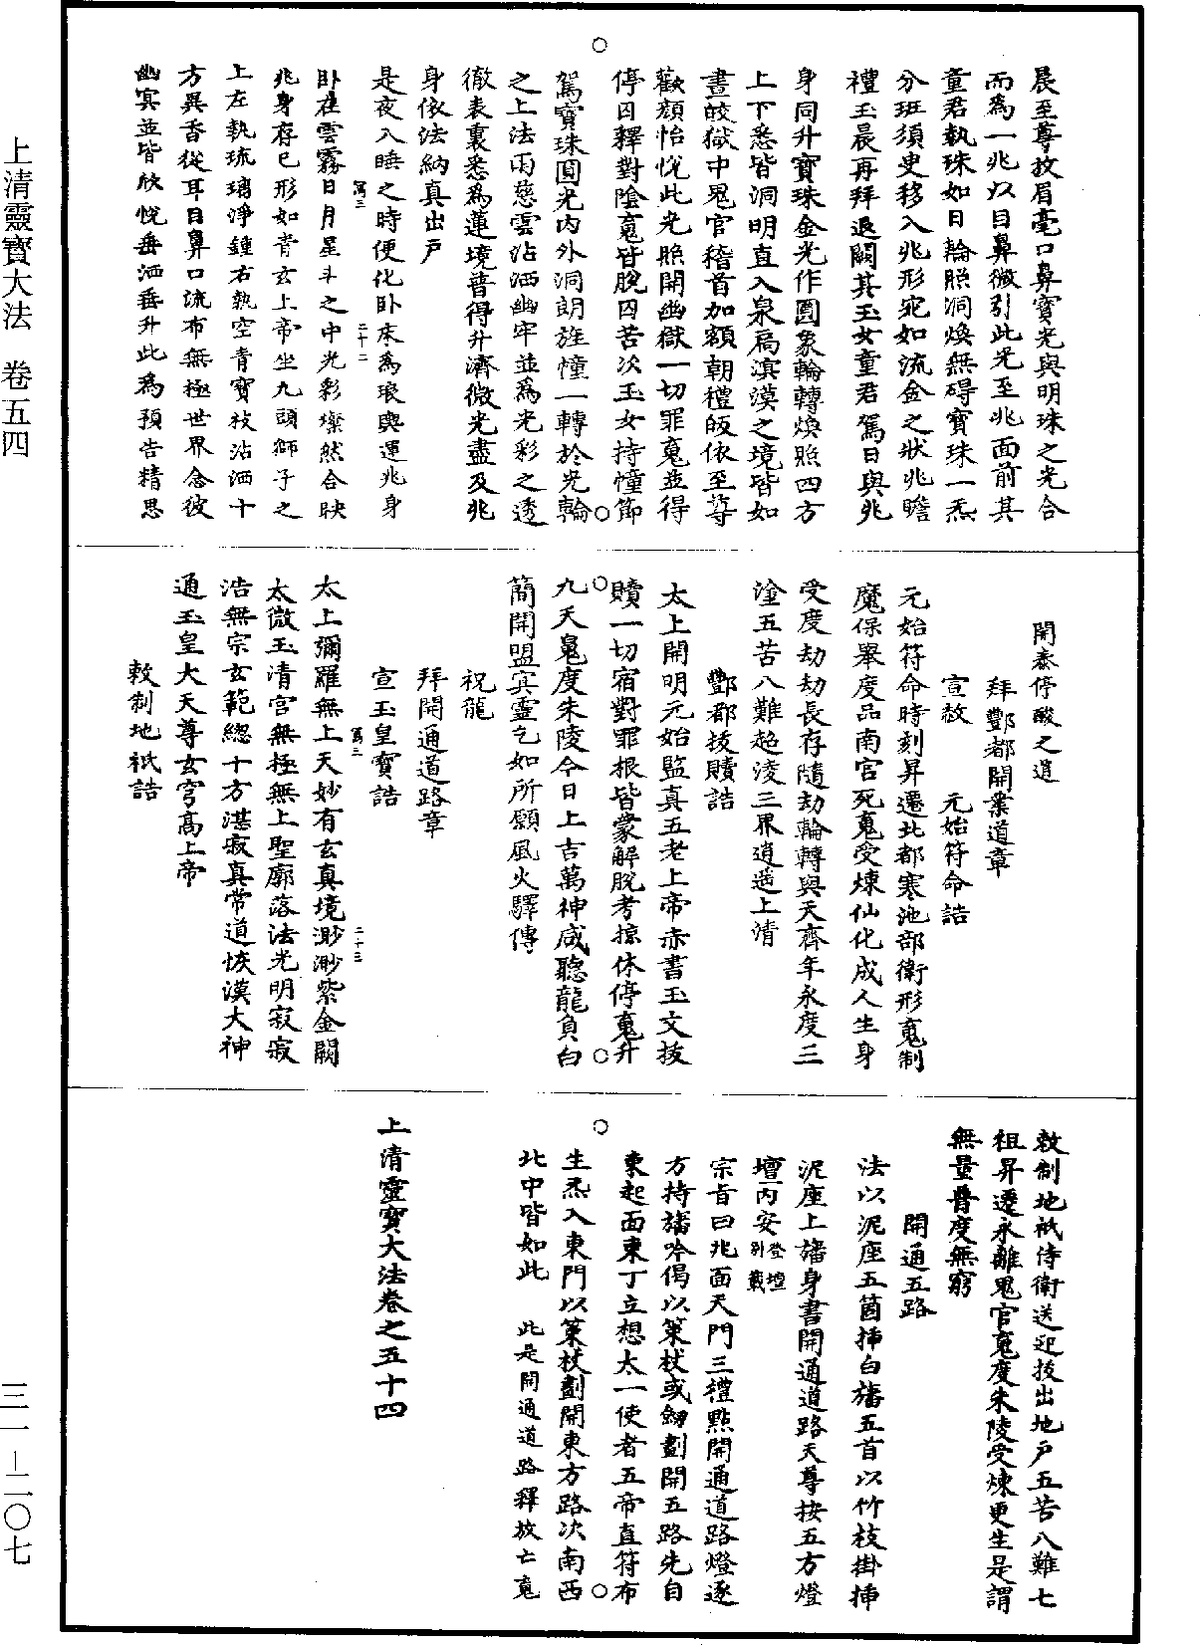 上清靈寶大法　卷五四
三一－二〇七
晨至尊放眉毫口鼻寶光與明珠之光合
而為一兆以目鼻微引此光至兆面前其
童君執珠如日輪照洞煥無碍寶珠一炁
分班須史移入兆形宛如流金之狀兆瞻
禮玉晨再拜退闕其玉女童君駕日與兆
身同升寶珠金光作圓象輪轉煥照四方
上下悉皆洞明直入泉扃溟漠之境皆如
晝皎獄中鬼官稽首加額朝禮皈依至尊
歡顏怡悅此光照開幽獄一切罪䰟並得
停囚釋對陰䰟皆脫囚苦次玉女持幢節
駕寶珠圓光內外洞朗旌幢一轉於光輪
之上法雨慈雲沾洒幽牢並為光彩之透
徹表裏悉為蓮境普得升濟微光盡及兆
身依法納真出戶
是夜入睡之時便化卧床為琅輿運兆身
卧在雲霧日月星斗之中光彩燦然合映
兆身存已形如青玄上帝坐九頭獅子之
上左執琉璃淨鍾右執空青寶枝沾洒十
方異香從耳目鼻口流布無極世界念彼
幽冥並皆欣悅垂洒垂升此為預告精思
萬三
二十二
開泰停酸之道
拜酆都開業道章
宣赦　元始符命誥
元始符命時刻昇遷北都寒池部衛形䰟制
魔保舉度品南宮死䰟受煉仙化成人生身
受度劫劫長存隨劫輪轉與天齊年永度三
塗五苦八難超淩三界逍遙上清
酆都拔贖誥
太上開明元始監真五老上帝赤書玉文拔
贖一切宿對罪根皆蒙解脫考掠休停䰟升
九天鬼度朱陵今日上古萬神咸聽龍負白
簡開盟冥靈乞如所願風火驛傳
祝龍
拜開通道路章
宣玉皇寶誥
太上彌羅無上天妙有玄真境渺渺紫金闕
太微玉清宮無極無上聖廓落法光明寂寂
浩無宗玄範總十方湛寂真常道恢漠大神
通玉皇大天尊玄穹高上帝
敕制地祇誥
萬三
二十三
敕制地祇侍衛送迎拔出地戶五苦八難七
祖昇遷永離鬼官䰟度朱陵受煉更生是謂
無量普度無窮
開通五路
法以泥座五箇揷白旛五首以竹枝掛揷
泥座上旛身書開通道路天尊按五方燈
壇內安登壇別載
宗旨曰兆面天門三禮點開通道路燈逐
方持旛吟偈以策杖或劒劃開五路先自
東起面東丁立想太一使者五帝直符布
生炁入東門以策杖劃開東方路次南西
北中皆如此　此是開通道路釋放亡䰟
上清靈寶大法卷之五十四